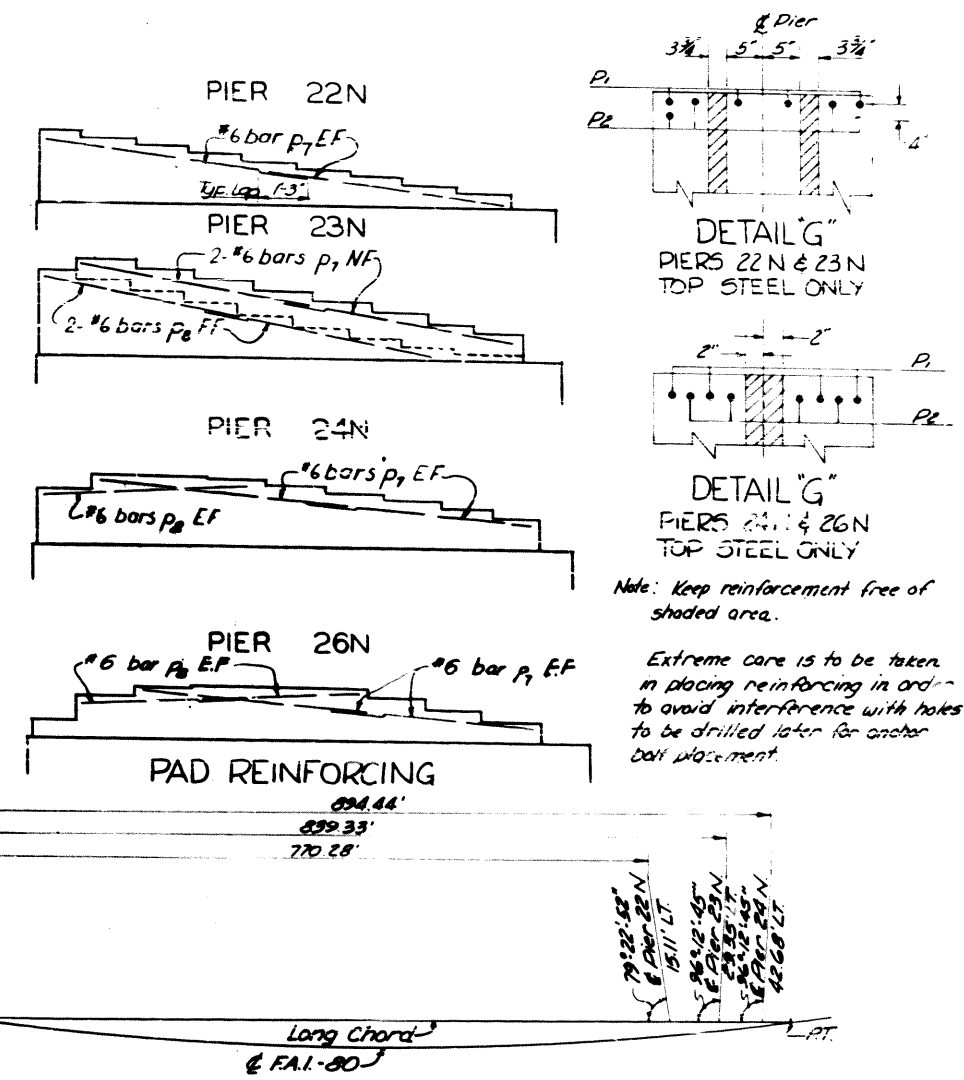 PIER 22N
#6 bar p7 EF
Typ. Lap 1'-3"
PIER 23N
2-#6 bars p7 NF
2-#6 bars p8 FF
PIER 24N
#6 bars p7 EF
#6 bars p8 EF
PIER 26N
#6 bar p8 E.F
#6 bar p7 E.F
PAD REINFORCING
℄ Pier
3¾" 5" 5" 3¾"
P1
P2
4"
DETAIL "G"
PIERS 22N & 23N
TOP STEEL ONLY
2"
2"
P1
P2
DETAIL "G"
PIERS 24N & 26N
TOP STEEL ONLY
Note: Keep reinforcement free of
shaded area.
Extreme care is to be taken
in placing reinforcing in order
to avoid interference with holes
to be drilled later for anchor
bolt placement.
894.44'
839.33'
770.28'
79°22'52"
℄ Pier 22N
15.11' LT.
96°12'45"
℄ Pier 23N
29.35' LT.
96°12'45"
℄ Pier 24N
42.68' LT.
Long Chord
P.T.
℄ F.A.I.-80